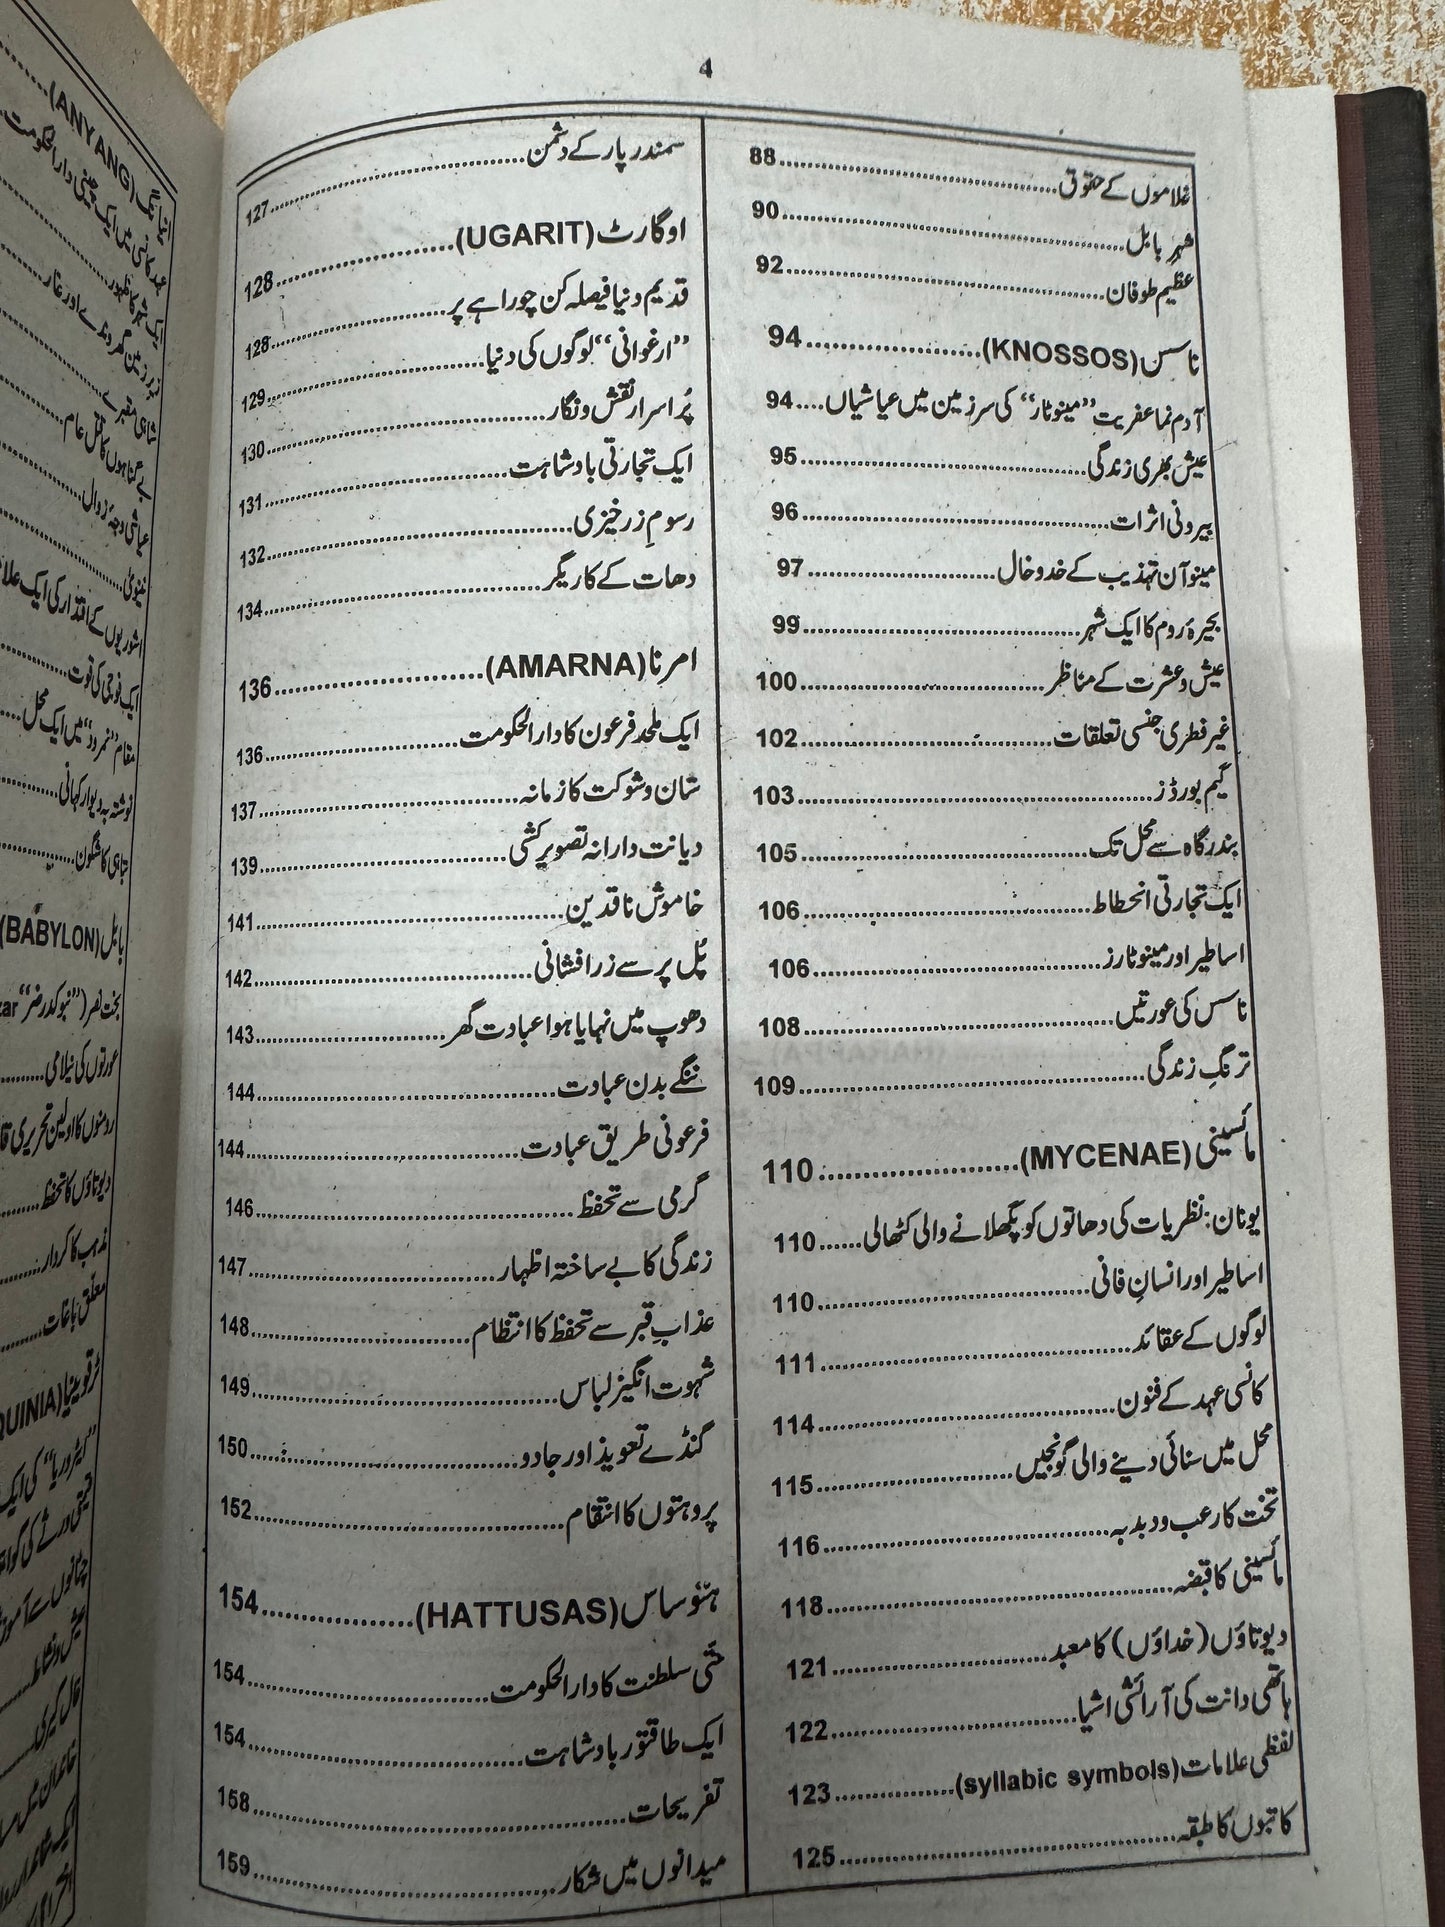 4
غلاموں کے حقوق............88
شہر بابل............90
عظیم طوفان............92
ناسس (KNOSSOS)............94
آدم نما عفریت ”مینوٹار“ کی سرزمین میں عیاشیاں....94
عیش بھری زندگی............95
بیرونی اثرات............96
مینوآن تہذیب کے خدوخال............97
بحیرۂ روم کا ایک شہر............99
عیش و عشرت کے مناظر............100
غیر فطری جنسی تعلقات............102
گیم بورڈز............103
بندرگاہ سے محل تک............105
ایک تجارتی انحطاط............106
اساطیر اور مینوٹارز............106
ناسس کی عورتیں............108
ترنگِ زندگی............109
مائسینی (MYCENAE)............110
یونان: نظریات کی دھاتوں کو پگھلانے والی کٹھالی......110
اساطیر اور انسانِ فانی............110
لوگوں کے عقائد............111
کانسی عہد کے فنون............114
محل میں سنائی دینے والی گونجیں............115
تخت کا رعب و دبدبہ............116
مائسینی کا قبضہ............118
دیوتاؤں (خداؤں) کا معبد............121
ہاتھی دانت کی آرائشی اشیا............122
لفظی علامات (syllabic symbols)............123
کاتبوں کا طبقہ............125
سمندر پار کے دشمن............127
اوگارٹ (UGARIT)............128
قدیم دنیا فیصلہ کن چوراہے پر............128
”ارغوانی“ لوگوں کی دنیا............129
پُراسرار نقش و نگار............130
ایک تجارتی بادشاہت............131
رسومِ زرخیزی............132
دھات کے کاریگر............134
امرنا (AMARNA)............136
ایک ملحد فرعون کا دارالحکومت............136
شان و شوکت کا زمانہ............137
دیانت دارانہ تصویر کشی............139
خاموش ناقدین............141
پُل پر سے زر افشانی............142
دھوپ میں نہایا ہوا عبادت گھر............143
ننگے بدن عبادت............144
فرعونی طریق عبادت............144
گرمی سے تحفظ............146
زندگی کا بے ساختہ اظہار............147
عذابِ قبر سے تحفظ کا انتظام............148
شہوت انگیز لباس............149
گنڈے تعویذ اور جادو............150
پروہتوں کا انتقام............152
ہتوساس (HATTUSAS)............154
حتّی سلطنت کا دارالحکومت............154
ایک طاقتور بادشاہت............154
تفریحات............158
میدانوں میں شکار............159
(ANYANG)
ایک شہر کا ظہور
شاہی مقبرے
بے گناہوں کا قتل عام
عیاشی وجۂ زوال
نینویٰ
ایک فوجی کی قوت
مقام ”نمرود“ میں ایک محل
نوشتہ پہ دیوار کہانی
تباہی کا شگون
بابل (BABYLON)
عورتوں کی نیلامی
دیوتاؤں کا تحفظ
مذہب کا کردار
معلق باغات